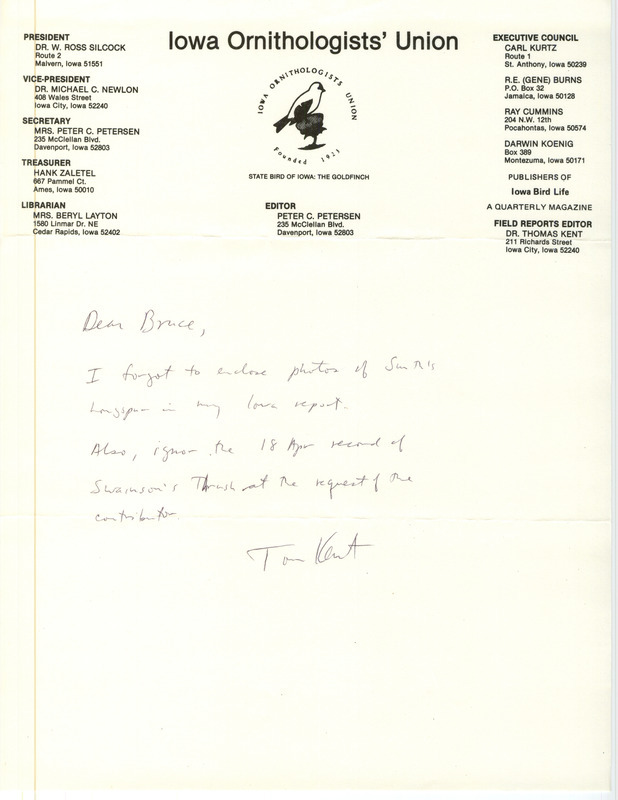 Iowa Ornithologists' Union
PRESIDENT
DR. W. ROSS SILCOCK
Route 2
Malvern, Iowa 51551
VICE-PRESIDENT
DR. MICHAEL C. NEWLON
408 Wales Street
Iowa City, Iowa 52240
SECRETARY
MRS. PETER C. PETERSEN
235 McClellan Blvd.
Davenport, Iowa 52803
TREASURER
HANK ZALETEL
667 Pammel Ct.
Ames, Iowa 50010
LIBRARIAN
MRS. BERYL LAYTON
1580 Linmar Dr. NE
Cedar Rapids, Iowa 52402
IOWA ORNITHOLOGISTS UNION
Founded 1923
STATE BIRD OF IOWA: THE GOLDFINCH
EDITOR
PETER C. PETERSEN
235 McClellan Blvd.
Davenport, Iowa 52803
EXECUTIVE COUNCIL
CARL KURTZ
Route 1
St. Anthony, Iowa 50239
R.E. (GENE) BURNS
P.O. Box 32
Jamaica, Iowa 50128
RAY CUMMINS
204 N.W. 12th
Pocahontas, Iowa 50574
DARWIN KOENIG
Box 389
Montezuma, Iowa 50171
PUBLISHERS OF
Iowa Bird Life
A QUARTERLY MAGAZINE
FIELD REPORTS EDITOR
DR. THOMAS KENT
211 Richards Street
Iowa City, Iowa 52240
Dear Bruce,
I forgot to enclose photos of Smith's
Longspur in my Iowa report.
Also, ignore the 18 Apr record of
Swainson's Thrush at the request of the
contributor.
Tom Kent